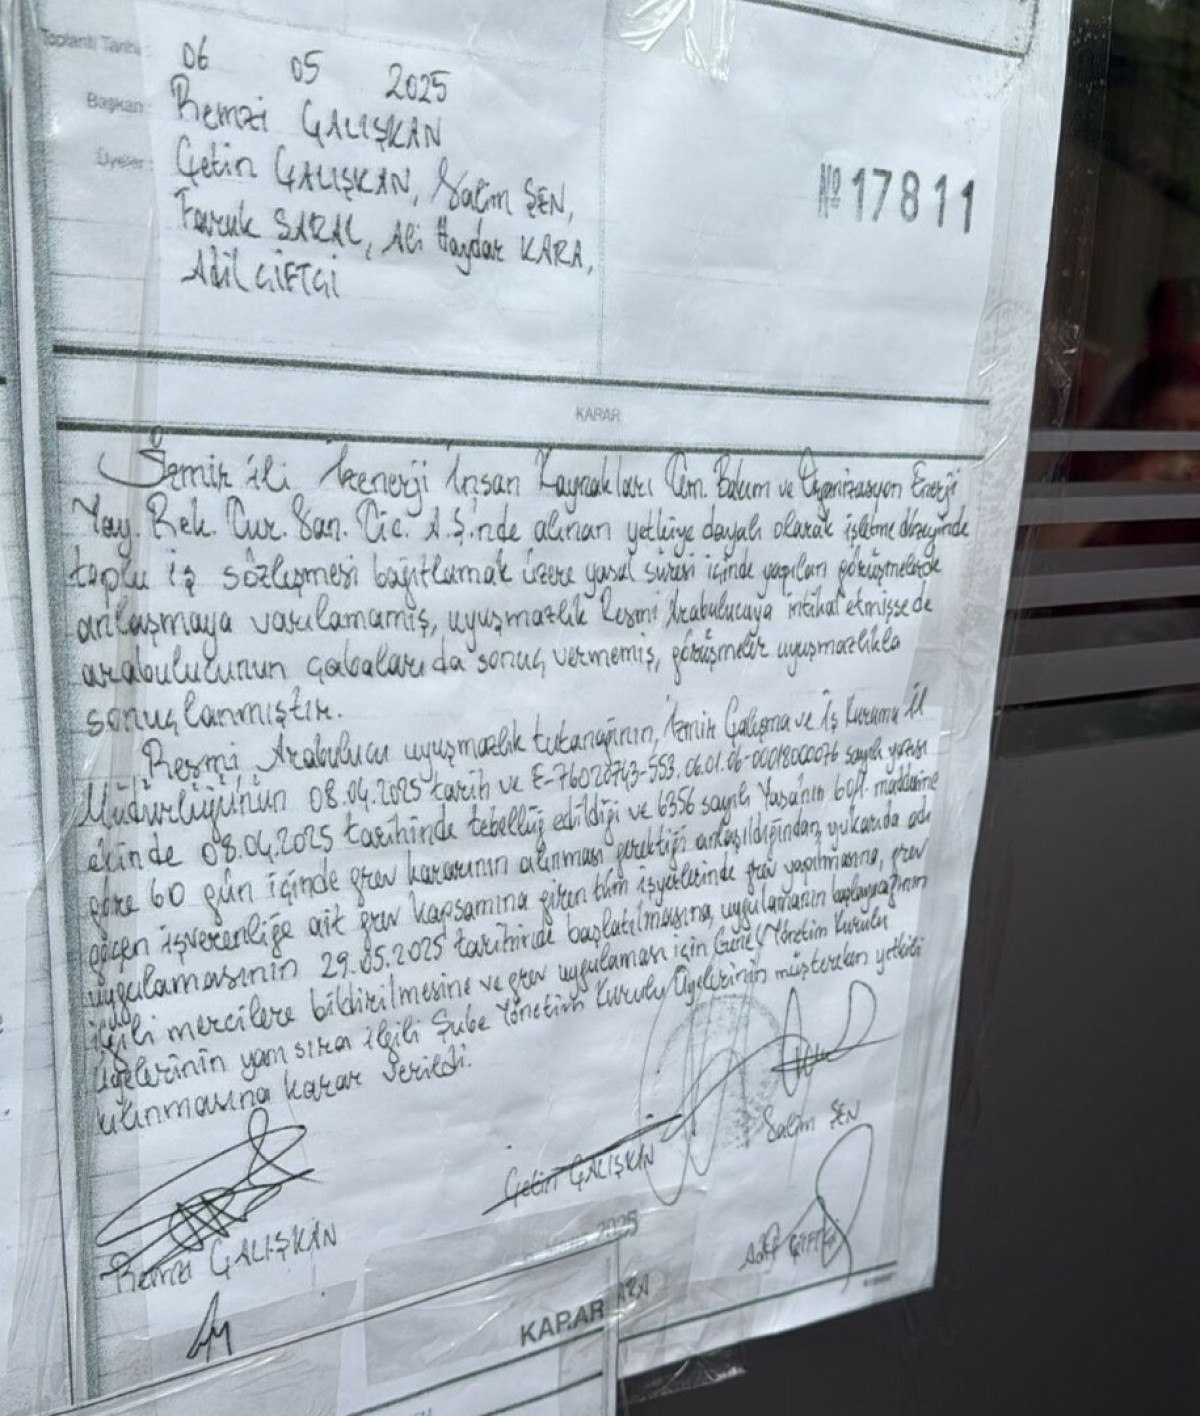 Toplantı Tarihi: 06 05 2025
Başkan: Remzi ÇALIŞKAN
Üyeler: Çetin ÇALIŞKAN, Salim ŞEN,
Faruk SARAL, Ali Haydar KARA,
Adil ÇİFTÇİ
№ 17811
KARAR
İzmir ili İzenerji İnsan Kaynakları Tem. Bakım ve Organizasyon Enerji
Yay. Rek. Tur. San. Tic. A.Ş.nde alınan yetkiye dayalı olarak işletme düzeyinde
toplu iş sözleşmesi bağıtlamak üzere yasal süresi içinde yapılan görüşmelerde
anlaşmaya varılamamış, uyuşmazlık Resmi Arabulucaya intikal etmişsede
arabulucunun çabalarıda sonuç vermemiş, görüşmeler uyuşmazlıkla
sonuçlanmıştır.
Resmi Arabulucu uyuşmazlık tutanağının, İzmir Çalışma ve İş Kurumu İl
Müdürlüğünün 08.04.2025 tarih ve E-76020743-553.06.01.06-00018000076 sayılı yazısı
ekinde 08.04.2025 tarihinde tebellüğ edildiği ve 6356 sayılı Yasa'nın 60/1. maddesine
göre 60 gün içinde grev kararının alınması gerektiği anlaşıldığından, yukarıda adı
geçen işverenliğe ait grev kapsamına giren tüm işyerlerinde grev yapılmasına, grev
uygulamasının 29.05.2025 tarihinde başlatılmasına, uygulamanın başlayacağının
ilgili mercilere bildirilmesine ve grev uygulaması için Genel Yönetim Kurulu
üyelerinin yanı sıra ilgili Şube Yönetim Kurulu Üyelerinin müştereken yetkili
kılınmasına karar verildi.
Remzi ÇALIŞKAN
Çetin ÇALIŞKAN
Salim ŞEN
Adil ÇİFTÇİ
2025
KARAR